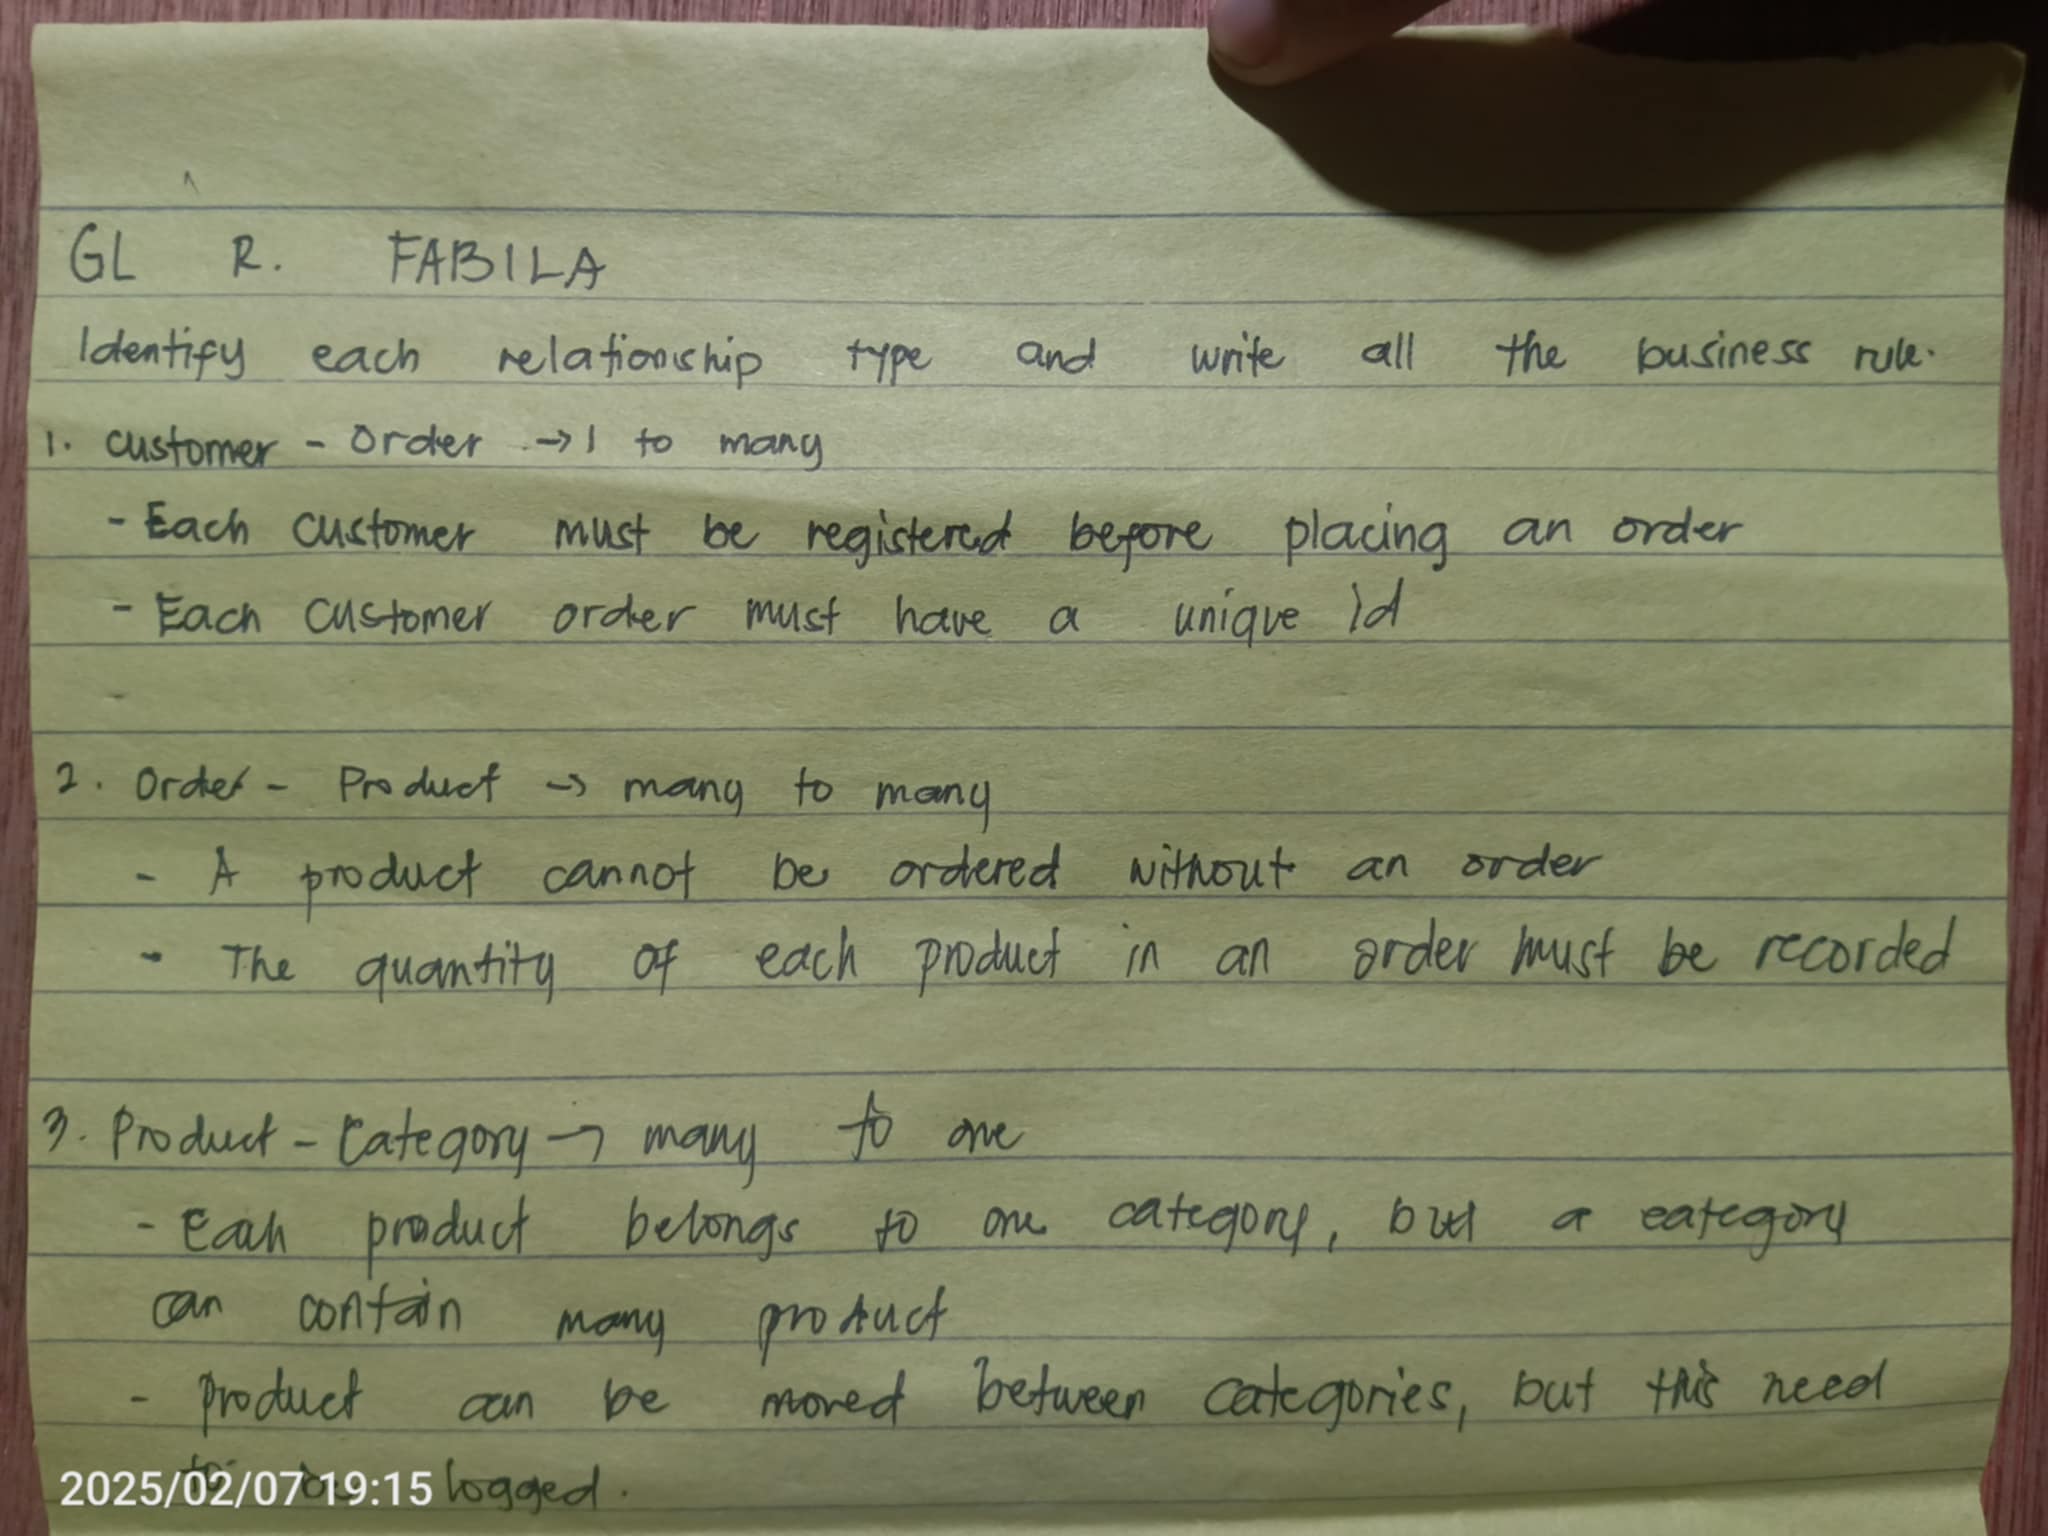 GL R. FABILA
Identify each relationship type and write all the business rule.
1. customer - Order → 1 to many
- Each customer must be registered before placing an order
- Each customer order must have a unique id
-
2. Order - Product → many to many
- A product cannot be ordered without an order
- The quantity of each product in an order must be recorded
3. Product - Category → many to one
- Each product belongs to one category, but a category
can contain many product
- product can be moved between categories, but this need
to be logged.
2025/02/07 19:15